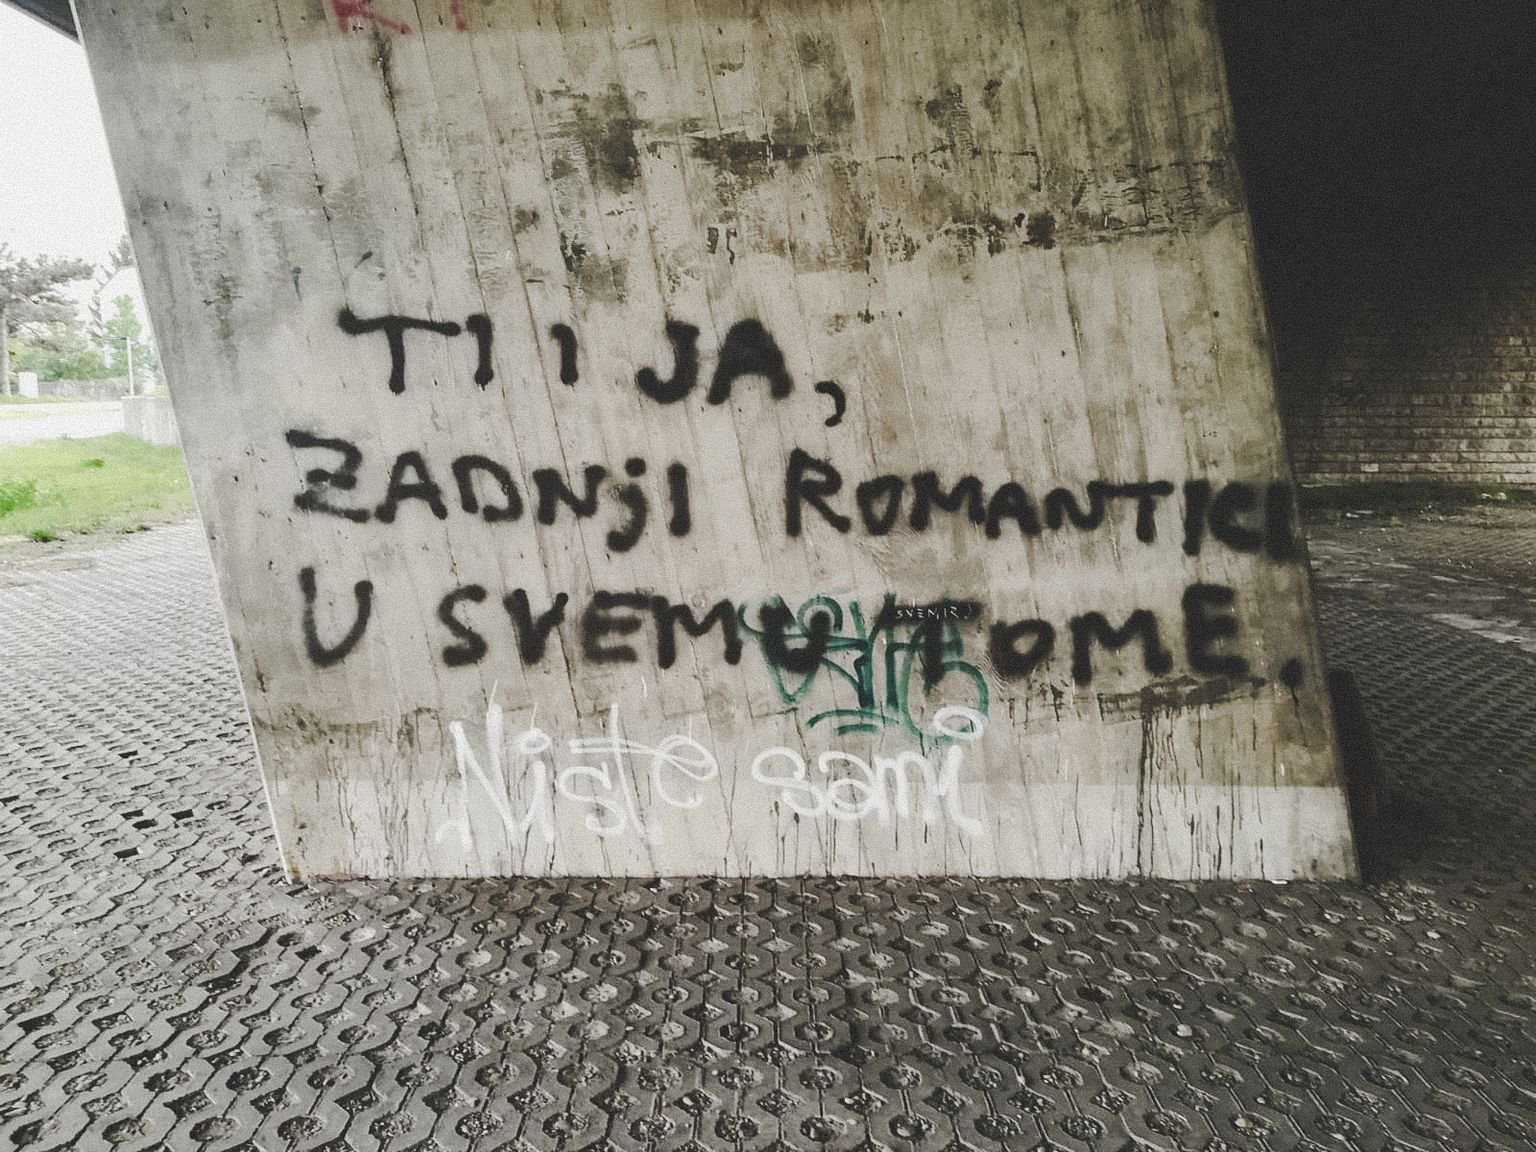 TI I JA,
ZADNjI ROMANTICI
U SVEMU TOME.
SVEMIR
Niste sami